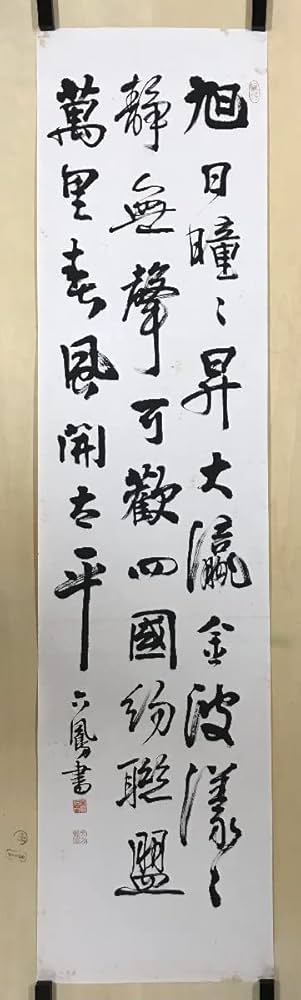 旭日瞳〻昇大瀛金波漾〻
静無聲可歡四國約聯盟
萬里春風開太平
六鳳書